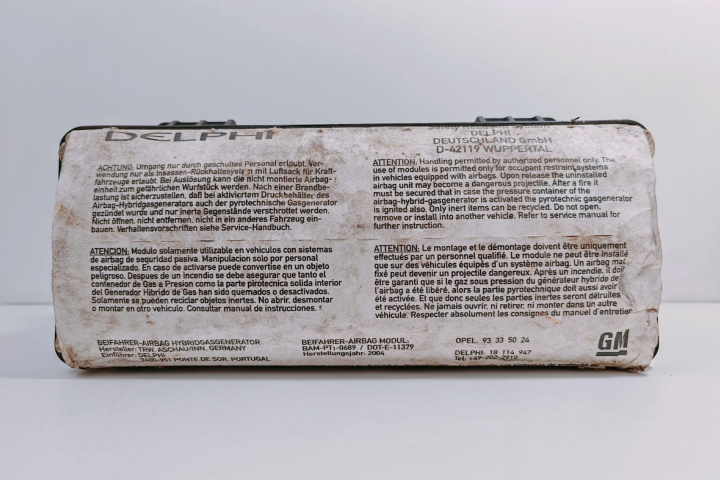 DELPHI
DELPHI
DEUTSCHLAND GmbH
D-42119 WUPPERTAL
ACHTUNG: Umgang nur durch geschultes Personal erlaubt. Ver-
wendung nur als Insassen-Rückhaltesystem mit Luftsack für Kraft-
fahrzeuge erlaubt. Bei Auslösung kann die nicht montierte Airbag-
einheit zum gefährlichen Wurfstück werden. Nach einer Brandbe-
lastung ist sicherzustellen, daß bei aktiviertem Druckbehälter des
Airbag-Hybridgasgenerators auch der pyrotechnische Gasgenerator
gezündet wurde und nur inerte Gegenstände verschrottet werden.
Nicht öffnen, nicht entfernen, nicht in ein anderes Fahrzeug ein-
bauen. Verhaltensvorschriften siehe Service-Handbuch.
ATTENTION: Handling permitted by authorized personnel only. The
use of modules is permitted only for occupant restraint systems
in vehicles equipped with airbags. Upon release the uninstalled
airbag unit may become a dangerous projectile. After a fire it
must be secured that in case the pressure container of the
airbag-hybrid-gasgenerator is activated the pyrotechnic gasgenerator
is ignited also. Only inert items can be recycled. Do not open,
remove or install into another vehicle. Refer to service manual for
further instruction.
ATENCION: Modulo solamente utilizable en vehiculos con sistemas
de airbag de seguridad pasiva. Manipulacion solo por personal
especializado. En caso de activarse puede convertise en un objeto
peligroso. Despues de un incendio se debe asegurar que tanto el
contenedor de Gas a Presion como la parte pirotecnica solida interior
del Generador Hibrido de Gas han sido quemados o desactivados.
Solamente se pueden reciclar objetos inertes. No abrir, desmontar
o montar en otro vehiculo. Consultar manual de instrucciones.
ATTENTION: Le montage et le démontage doivent être uniquement
effectués par un personnel qualifié. Le module ne peut être installé
que sur des véhicules équipés d'un système airbag. Un airbag mal
fixé peut devenir un projectile dangereux. Après un incendie, il doit
être garanti que si le gaz sous pression du générateur hybride de
l'airbag a été libéré, alors la partie pyrotechnique doit aussi avoir
été activée. Et que donc seules les parties inertes seront détruites
et recyclées. Ne jamais ouvrir, ni retirer, ni monter dans un autre
véhicule. Respecter absolument les consignes du manuel d'entretien
BEIFAHRER-AIRBAG HYBRIDGASGENERATOR
Hersteller: TRW, ASCHAU/INN, GERMANY
Einführer: DELPHI
7405-951 PONTE DE SOR, PORTUGAL
BEIFAHRER-AIRBAG MODUL:
BAM-PT1-0689 / DOT-E-11379
Herstellungsjahr: 2004
OPEL: 93 33 50 24
DELPHI: 18 114 947
Tel: +49-202-2910
GM